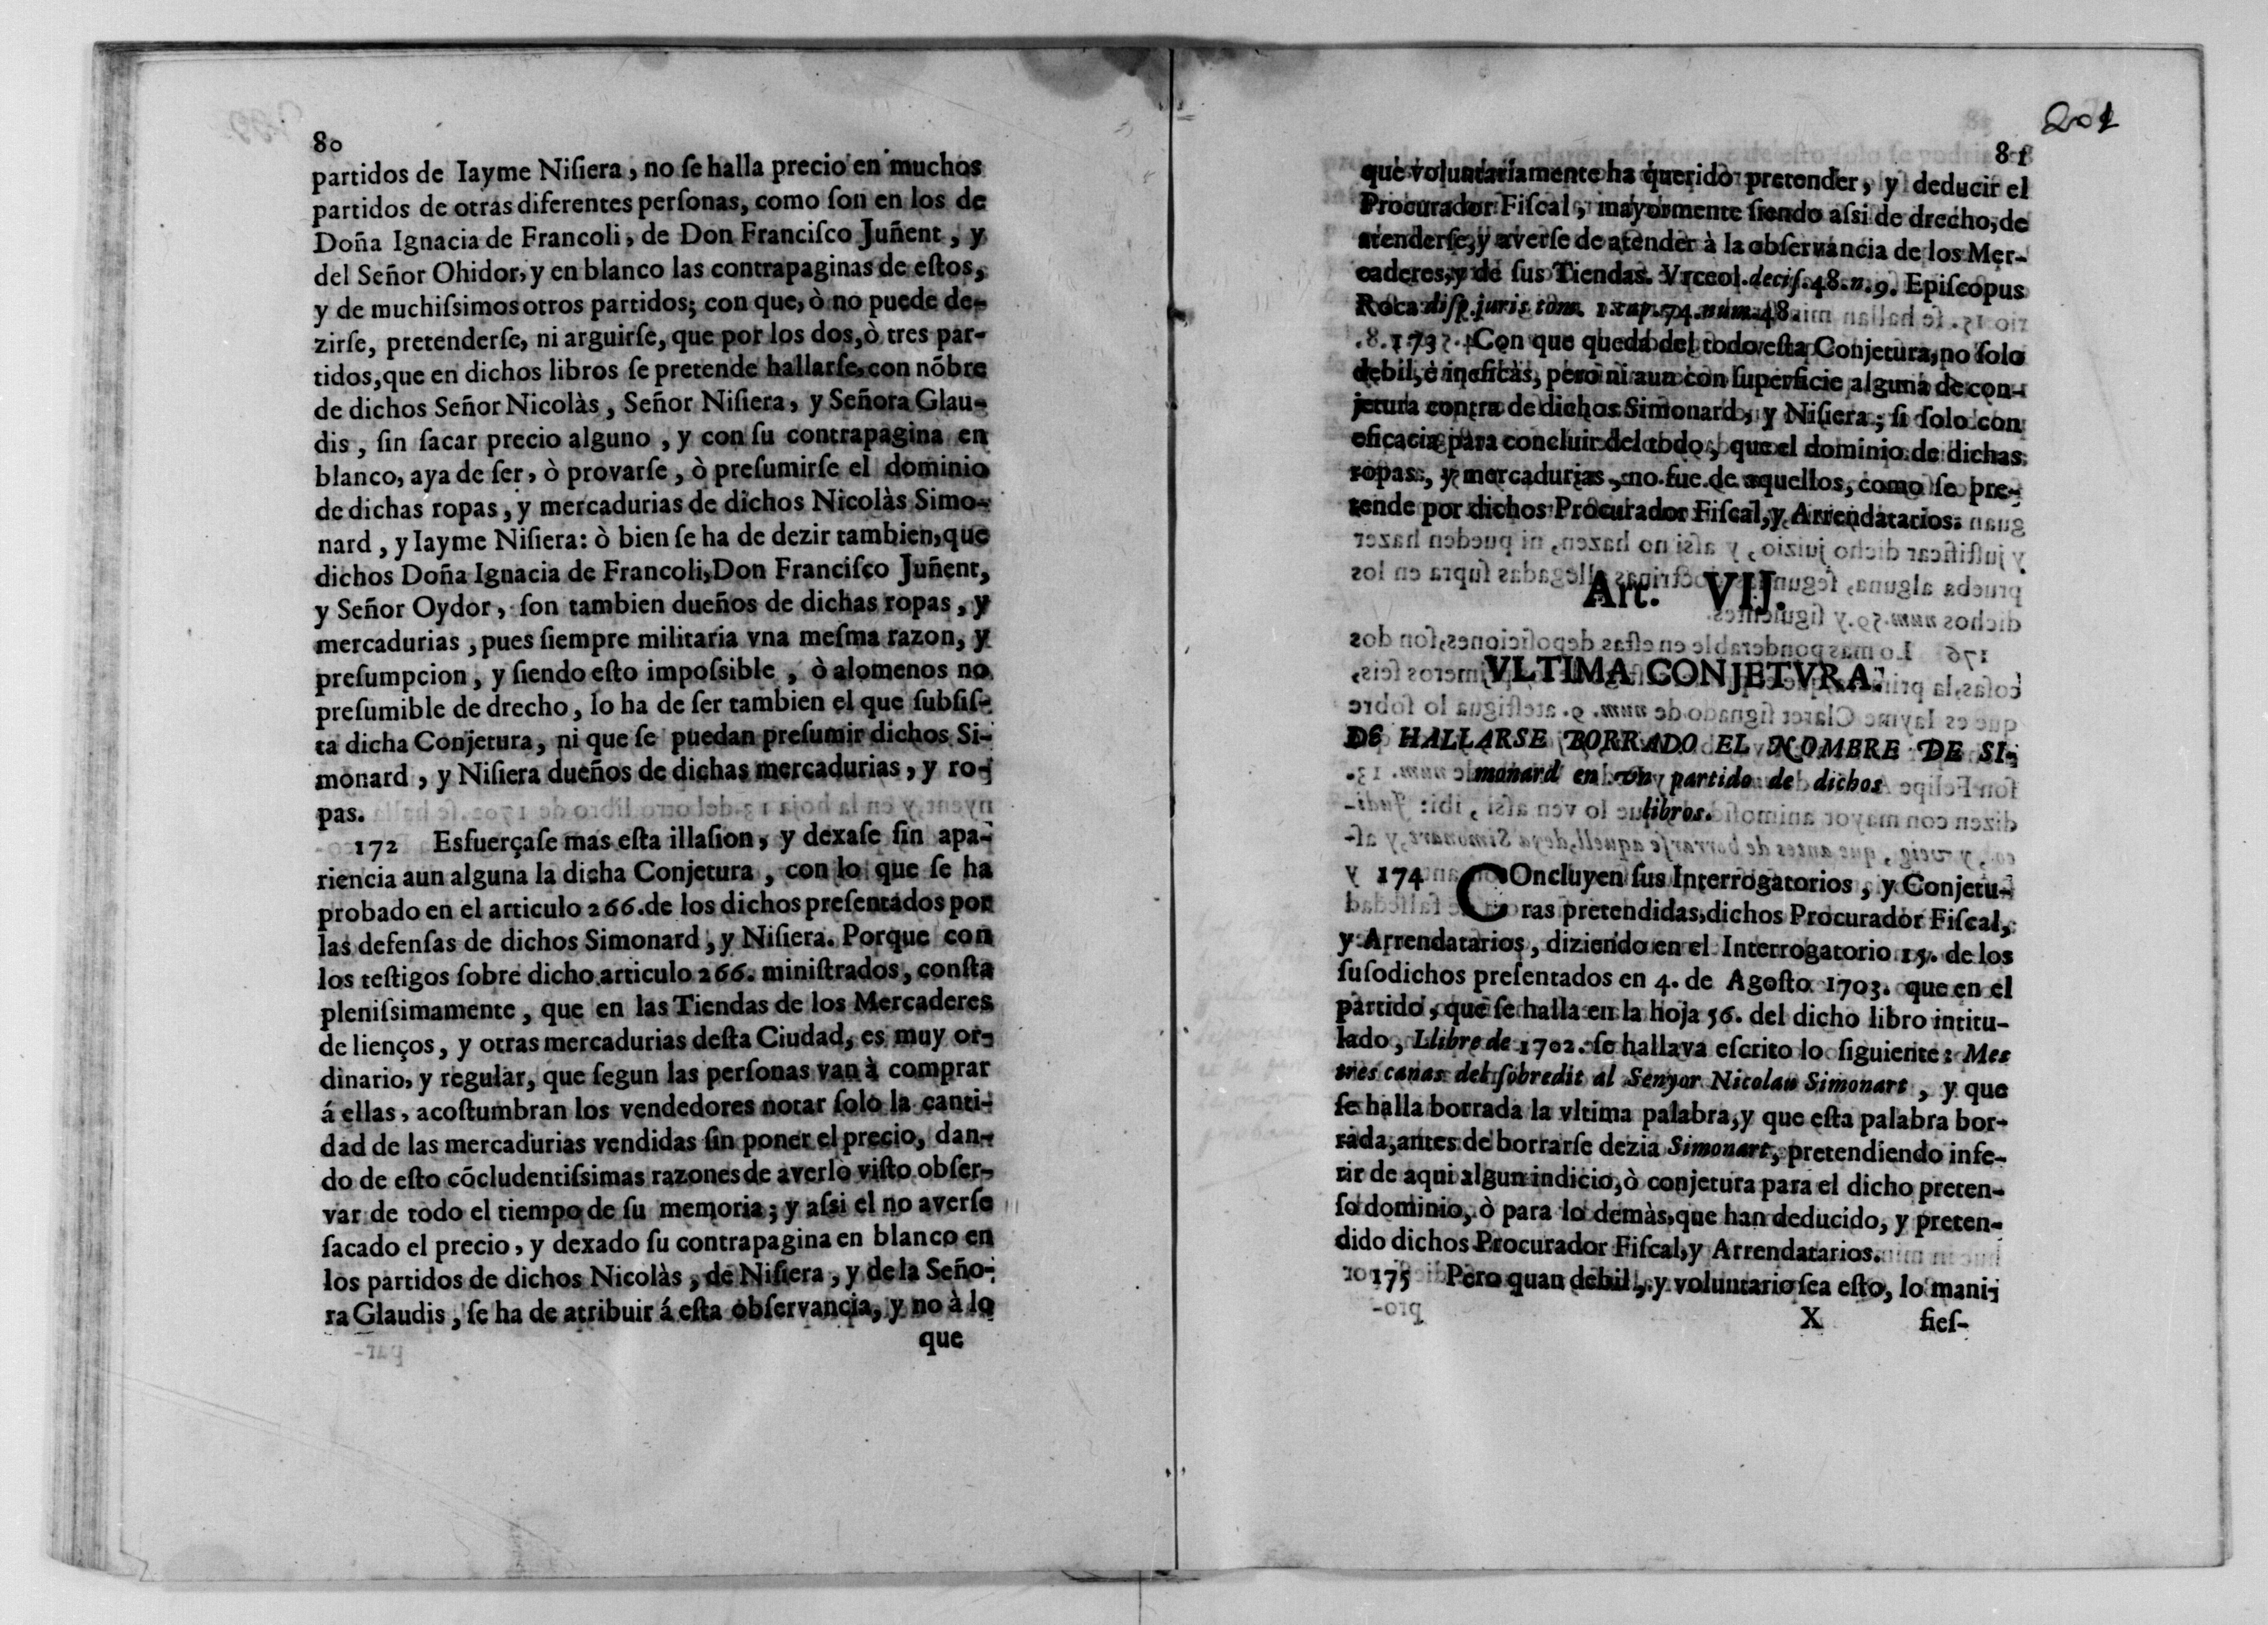 80
partidos de Iayme Niſiera, no ſe halla precio en muchos
partidos de otras diferentes perſonas, como ſon en los de
Doña Ignacia de Francoli, de Don Franciſco Juñent, y
del Señor Ohidor, y en blanco las contrapaginas de eſtos,
y de muchiſsimos otros partidos; con que, ò no puede de-
zirſe, pretenderſe, ni arguirſe, que por los dos, ò tres par-
tidos, que en dichos libros ſe pretende hallarſe, con nõbre
de dichos Señor Nicolàs, Señor Niſiera, y Señora Glau-
dis, ſin ſacar precio alguno, y con ſu contrapagina en
blanco, aya de ſer, ò provarſe, ò preſumirſe el dominio
de dichas ropas, y mercadurias de dichos Nicolàs Simo-
nard, y Iayme Niſiera: ò bien ſe ha de dezir tambien, que
dichos Doña Ignacia de Francoli, Don Franciſco Juñent,
y Señor Oydor, ſon tambien dueños de dichas ropas, y
mercadurias, pues ſiempre militaria vna meſma razon, y
preſumpcion, y ſiendo eſto impoſsible, ò alomenos no
preſumible de drecho, lo ha de ſer tambien el que ſubſiſ-
ta dicha Conjetura, ni que ſe puedan preſumir dichos Si-
monard, y Niſiera dueños de dichas mercadurias, y ro-
pas.
172 Esfuerçaſe mas eſta illaſion, y dexaſe ſin apa-
riencia aun alguna la dicha Conjetura, con lo que ſe ha
probado en el articulo 266. de los dichos preſentados por
las defenſas de dichos Simonard, y Niſiera. Porque con
los teſtigos ſobre dicho articulo 266. miniſtrados, conſta
pleniſsimamente, que en las Tiendas de los Mercaderes
de lienços, y otras mercadurias deſta Ciudad, es muy or-
dinario, y regular, que ſegun las perſonas van à comprar
á ellas, acoſtumbran los vendedores notar ſolo la canti-
dad de las mercadurias vendidas ſin poner el precio, dan-
do de eſto cõcludentiſsimas razones de averlo viſto obſer-
var de todo el tiempo de ſu memoria; y aſsi el no averſe
ſacado el precio, y dexado ſu contrapagina en blanco en
los partidos de dichos Nicolàs, de Niſiera, y de la Seño-
ra Glaudis, ſe ha de atribuir á eſta obſervancia, y no à lo
que
201
81
que voluntariamente ha querido pretender, y deducir el
Procurador Fiſcal, mayormente ſiendo aſsi de drecho, de
atenderſe, y averſe de atender à la obſervancia de los Mer-
caderes, y de ſus Tiendas. Vrceol. deciſ. 48. n. 9. Epiſcopus
Roca diſp. juris tom. 1. cap. 74. num. 48.
173 Con que queda del todo eſta Conjetura, no ſolo
debil, è ineficàs, pero ni aun con ſuperficie alguna de con-
jetura contra de dichos Simonard, y Niſiera; ſi ſolo con
eficacia para concluir del todo, que el dominio de dichas
ropas, y mercadurias, no fue de aquellos, como ſe pre-
tende por dichos Procurador Fiſcal, y Arrendatarios.
Art. VII.
VLTIMA CONJETVRA.
DE HALLARSE BORRADO EL NOMBRE DE SI-
monard en vn partido de dichos
libros.
174 COncluyen ſus Interrogatorios, y Conjetu-
ras pretendidas, dichos Procurador Fiſcal,
y Arrendatarios, diziendo en el Interrogatorio 15. de los
ſuſodichos preſentados en 4. de Agoſto 1703. que en el
partido, que ſe halla en la hoja 56. del dicho libro intitu-
lado, Llibre de 1702. ſe hallava eſcrito lo ſiguiente: Mes
tres canas del ſobredit al Senyor Nicolau Simonart, y que
ſe halla borrada la vltima palabra, y que eſta palabra bor-
rada, antes de borrarſe dezia Simonart, pretendiendo infe-
rir de aqui algun indicio, ò conjetura para el dicho preten-
ſo dominio, ò para lo demàs, que han deducido, y preten-
dido dichos Procurador Fiſcal, y Arrendatarios.
175 Pero quan debil, y voluntario ſea eſto, lo mani-
X fieſ-